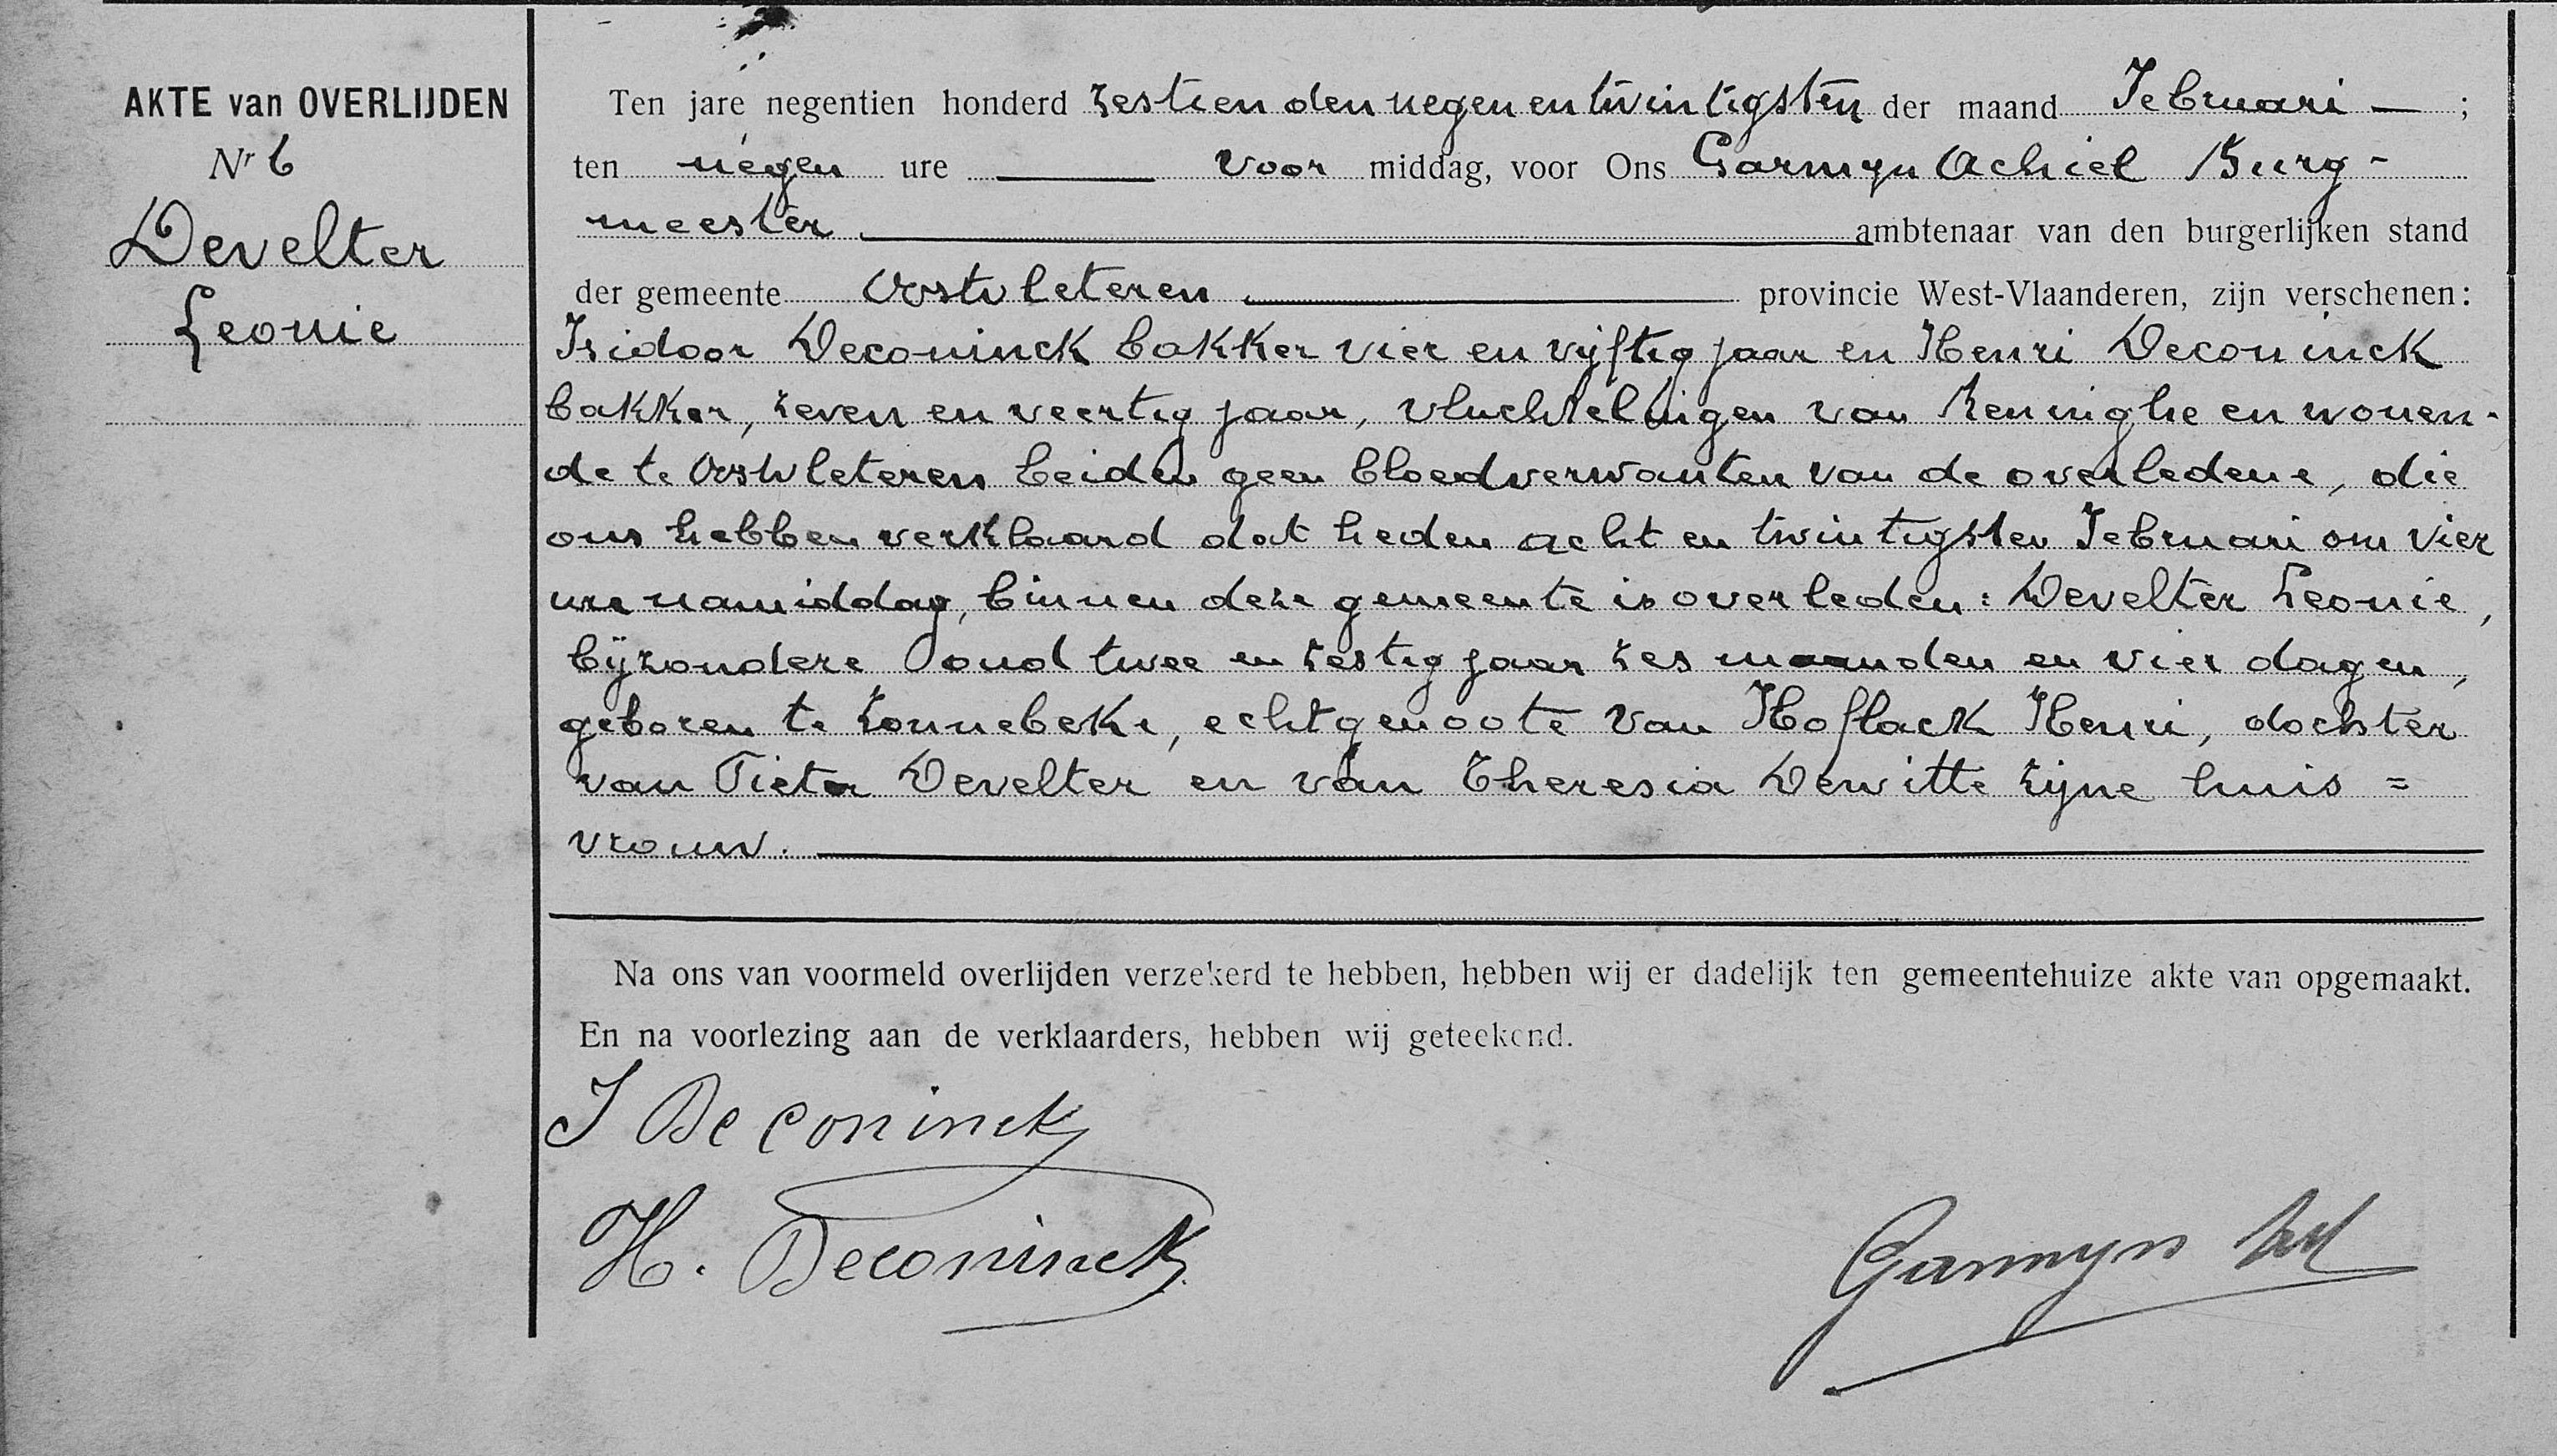 AKTE van OVERLIJDEN
Nr 6
Develter
Leonie
Ten jare negentien honderd zestien den negen en twintigsten der maand Februari — ;
ten negen ure — voor middag, voor Ons Garmyn Achiel Burg-
meester ambtenaar van den burgerlijken stand
der gemeente Oostvleteren provincie West-Vlaanderen, zijn verschenen:
Isidoor Deconinck bakker vier en vijftig jaar en Henri Deconinck
bakker, zeven en veertig jaar, vluchtelingen van Reninghe en wonen-
de te Oostvleteren beiden geen bloedverwanten van de overledene, die
ons hebben verklaard dat heden acht en twintigsten Februari om vier
ure namiddag, binnen deze gemeente is overleden: Develter Leonie,
bijzondere oud twee en zestig jaar zes maanden en vier dagen,
geboren te Zonnebeke, echtgenoote van Hoflack Henri, dochter
van Pieter Develter en van Theresia Dewitte zijne huis =
vrouw.
Na ons van voormeld overlijden verzekerd te hebben, hebben wij er dadelijk ten gemeentehuize akte van opgemaakt.
En na voorlezing aan de verklaarders, hebben wij geteekend.
I Deconinck
H. Deconinck
Garmyn